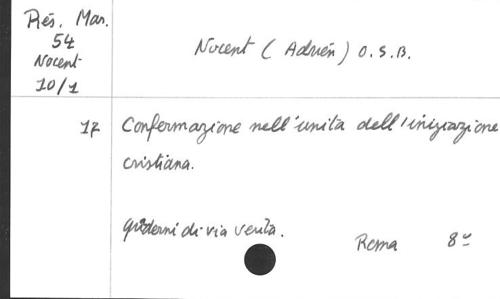 Rés. Mar.
54
Nocent
10/1
Nocent (Adrien) O.S.B.
17 Confermazione nell'unita dell'iniziazione
cristiana.
quaderni di via verita.
Roma 8º